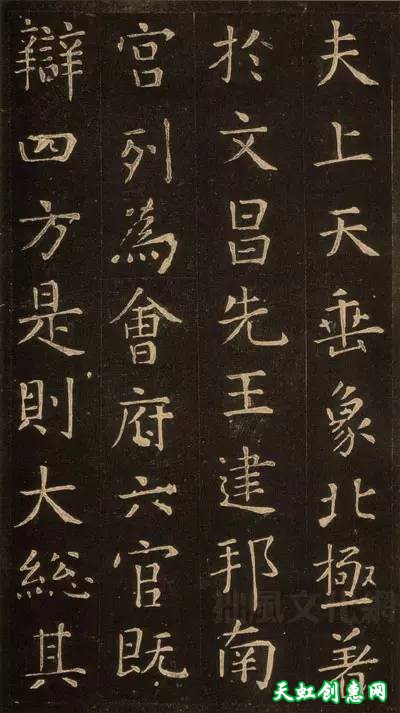 夫上天垂象北極著
於文昌先王建邦南
宮列為會府六官既
辯四方是則大總其
桐風文化網
天虹创惠网